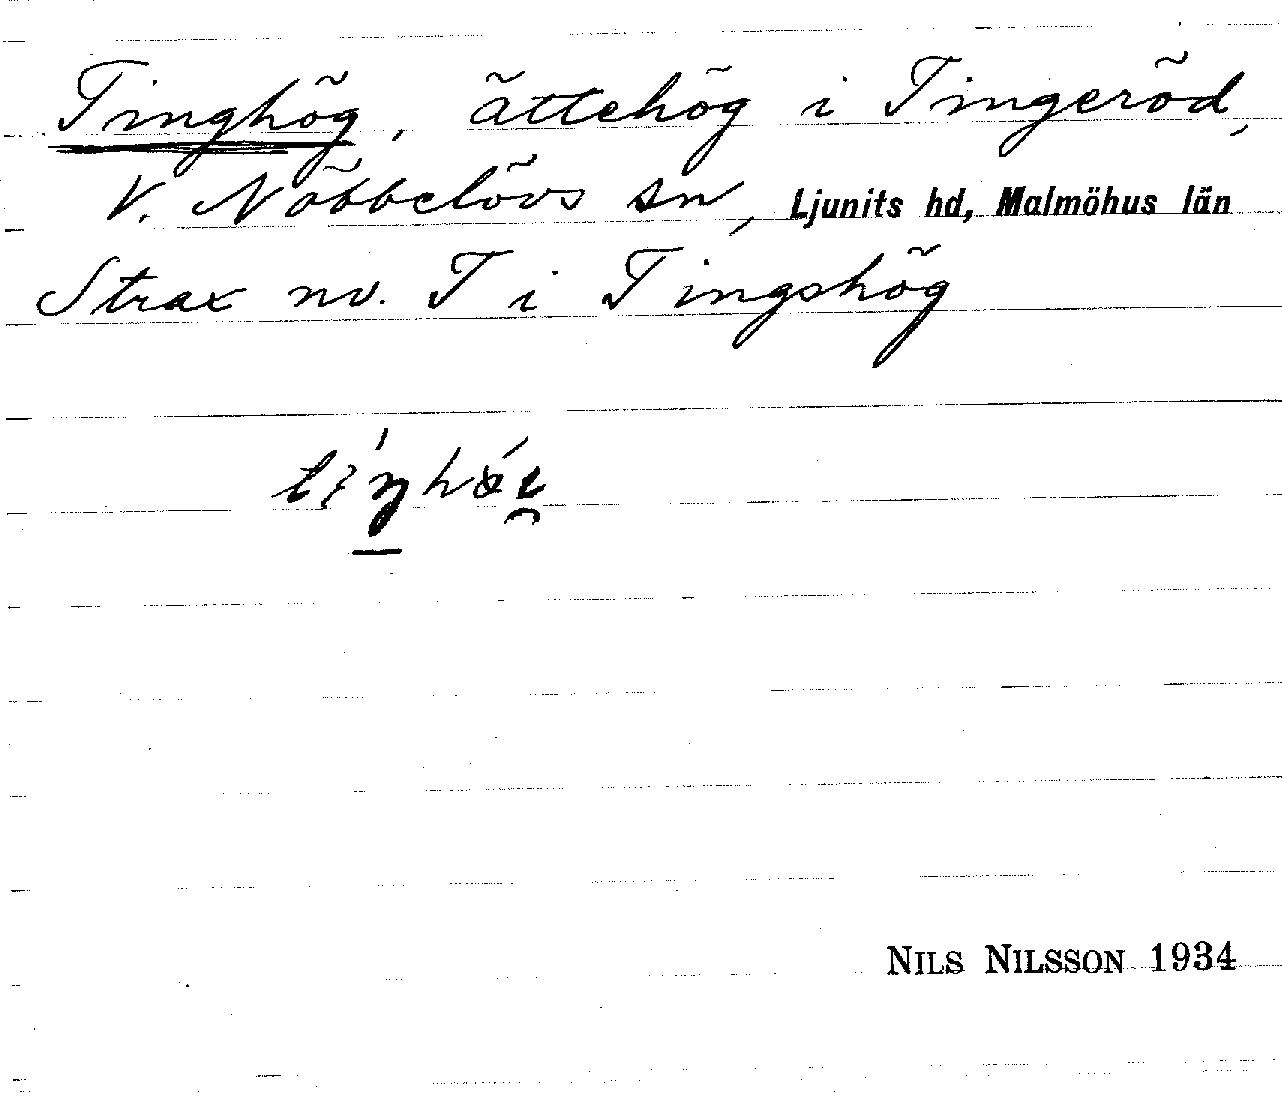 Tinghög, ättehög i Tingeröd,
V. Nöbbelövs sn, Ljunits hd, Malmöhus län
Strax nv. T i Tingshög
NILS NILSSON 1934